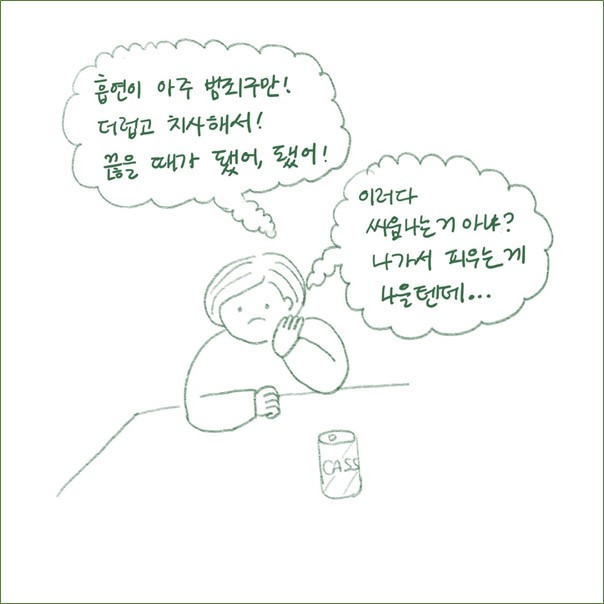 흡연이 아주 범죄구만!
더럽고 치사해서!
끊을 때가 됐어, 됐어!
이러다
싸움나는거 아냐?
나가서 피우는게
나을텐데...
CASS